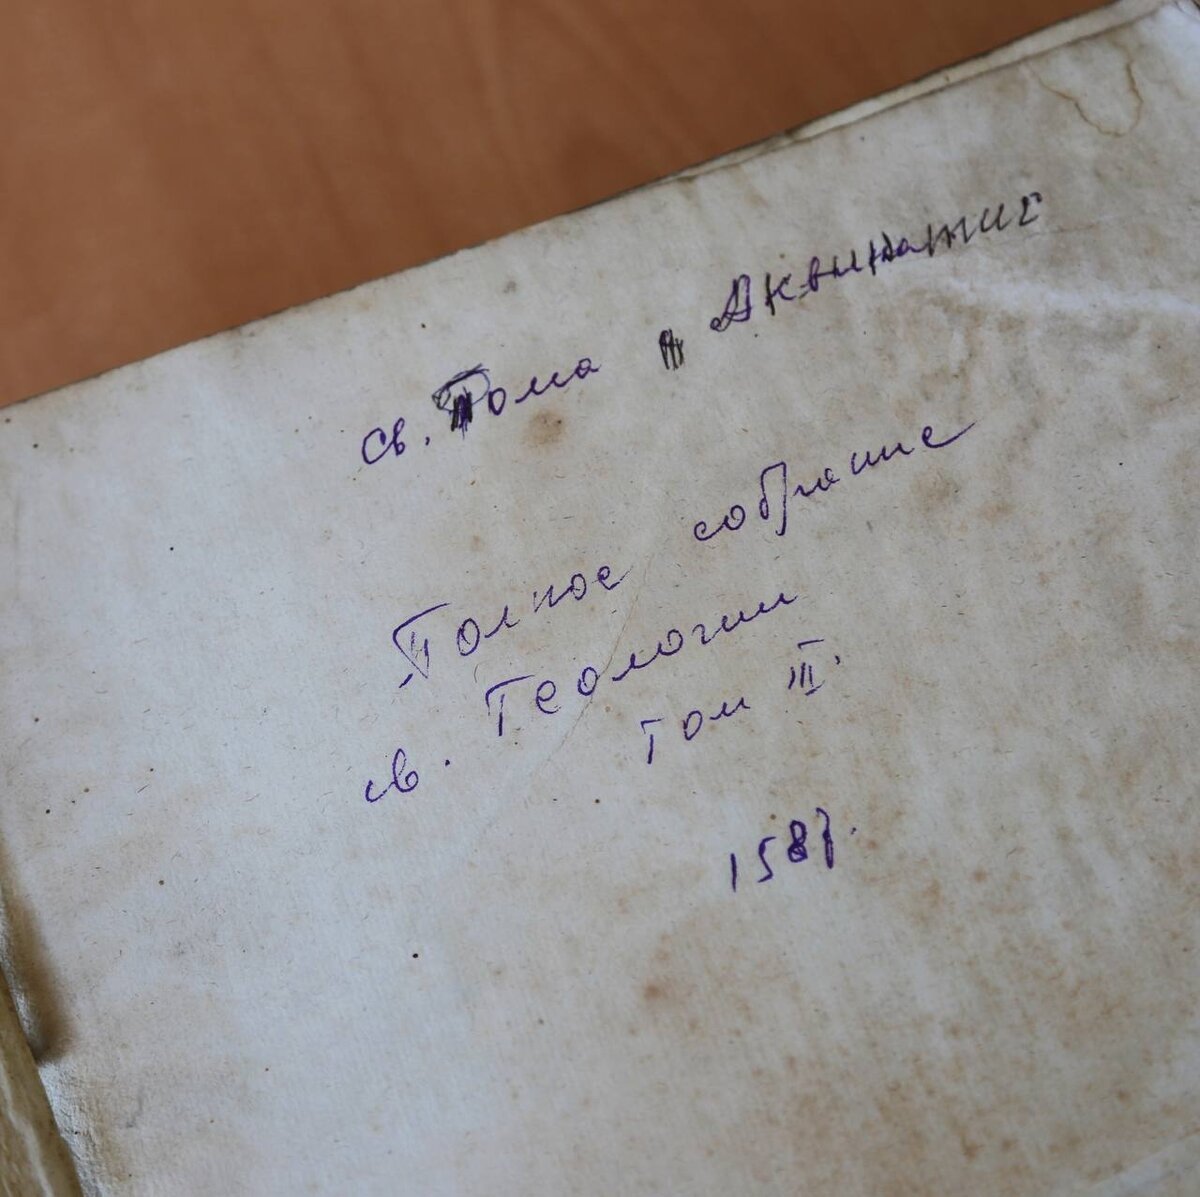 св. Тома Аквинатис
Полное собрание
св. Теологии
Том III.
1587.